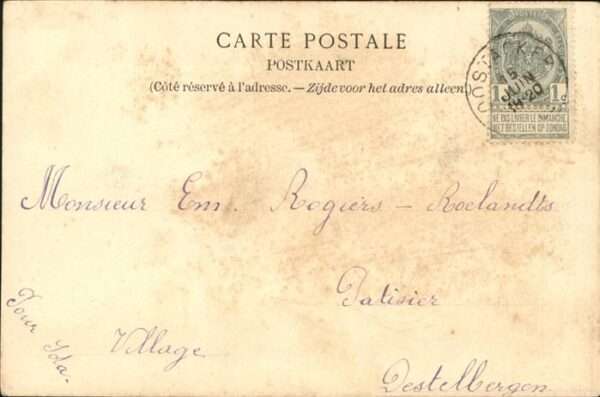 CARTE POSTALE
POSTKAART
(Côté réservé à l'adresse. — Zijde voor het adres alleen)
OOSTACKER
15
JUIN
19-20
1c 1c
NE PAS LIVRER LE DIMANCHE
NIET BESTELLEN OP ZONDAG
Monsieur Em. Rogiers - Roelandts
Patisier
Village
Destelbergen
Pour Ida.